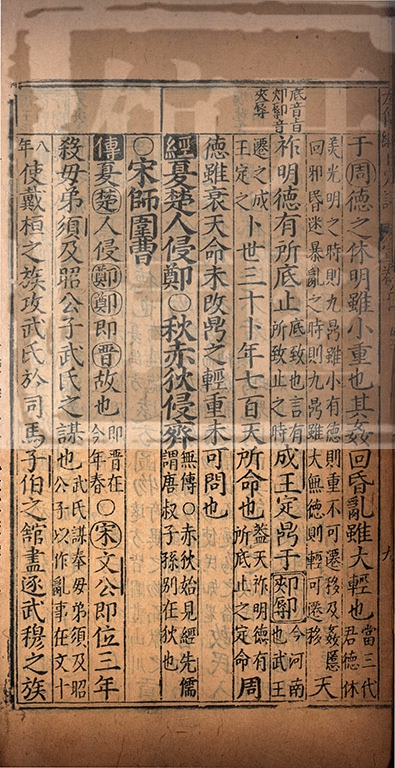 于周德之休明雖小重也其姦回昏亂雖大輕也當三代君德休
美光明之時則九鼎雖小有德則重不可遷移及姦慝回邪昏迷暴亂之時則九鼎雖大無德則輕可遷移天
郟鄏音夾辱
祚明德有所底止底致也言有所致止之時成王定鼎于郟鄏今河南也武王
遷之成王定之卜世三十卜年七百天所命也蓋天祚明德有所底止之定命周
德雖衰天命未改鼎之輕重未可問也
經夏楚人侵鄭○秋赤狄侵齊無傳○赤狄始見經先儒謂唐叔子孫別在狄也
○宋師圍曹
傳夏楚人侵鄭鄭即晉故也即晉在今年春○宋文公即位三年
殺毋弟須及昭公子武氏之謀也武氏謀奉毋弟須及昭公子以作亂事在文十
八年使戴桓之族攻武氏於司馬子伯之館盡逐武穆之族